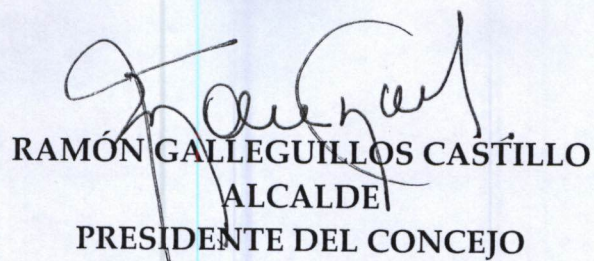 RAMÓN GALLEGUILLOS CASTILLO
ALCALDE
PRESIDENTE DEL CONCEJO